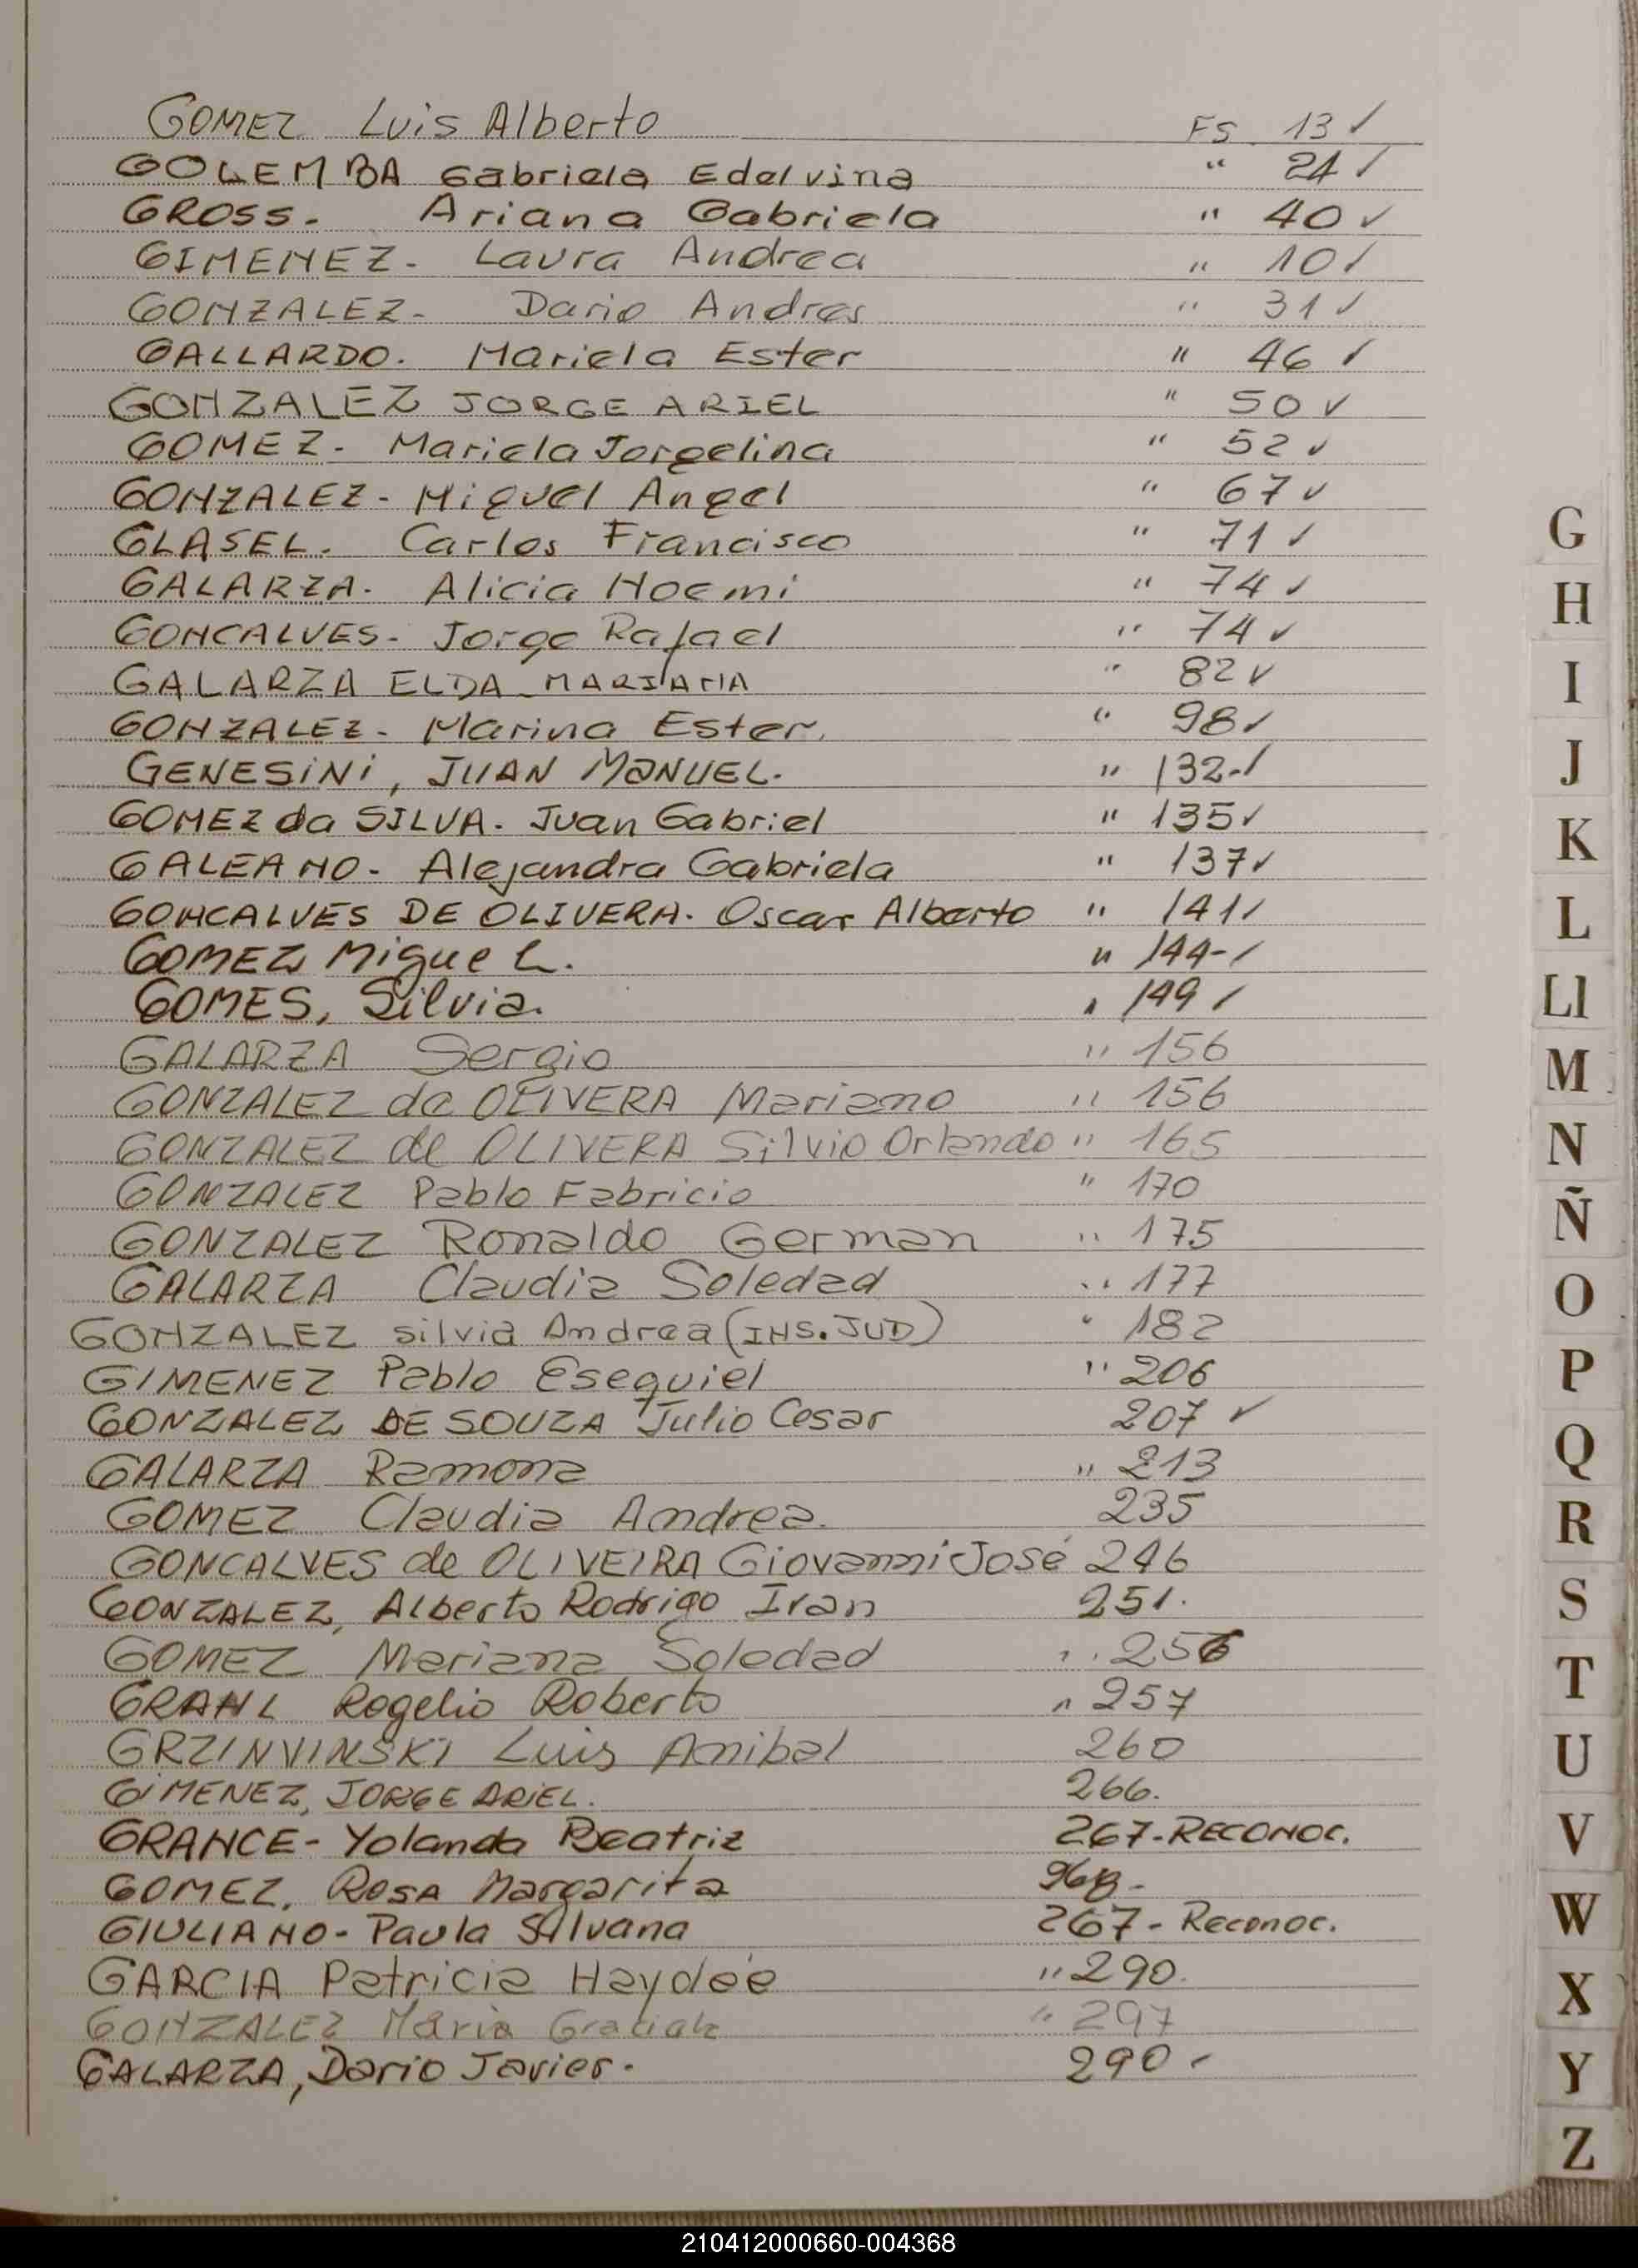 GOMEZ Luis Alberto FS 13 ✓
GOLEMBA Gabriela Edelvina " 21 ✓
GROSS- Ariana Gabriela " 40 ✓
GIMENEZ- Laura Andrea " 10 ✓
GONZALEZ- Dario Andres " 31 ✓
GALLARDO. Mariela Ester " 46 ✓
GONZALEZ JORGE ARIEL " 50 ✓
GOMEZ- Mariela Jorgelina " 52 ✓
GONZALEZ- Miguel Angel " 67 ✓
GLASEL. Carlos Francisco " 71 ✓
GALARZA. Alicia Noemi " 74 ✓
GONCALVES- Jorge Rafael " 74 ✓
GALARZA ELDA MARIANA " 82 ✓
GONZALEZ- Marina Ester. " 98 ✓
GENESINI, JUAN MANUEL. " 132-✓
GOMEZ da SILVA. Juan Gabriel " 135 ✓
GALEANO- Alejandra Gabriela " 137 ✓
GONCALVES DE OLIVERA. Oscar Alberto " 141 ✓
GOMEZ Miguel. " 144-✓
GOMES, Silvia. " 149 ✓
GALARZA Sergio " 156
GONZALEZ de OLIVERA Mariano " 156
GONZALEZ de OLIVERA Silvio Orlando " 165
GONZALEZ Pablo Fabricio " 170
GONZALEZ Ronaldo German " 175
GALARZA Claudia Soledad " 177
GONZALEZ Silvia Andrea (INS. JUD) " 182
GIMENEZ Pablo Esequiel " 206
GONZALEZ DE SOUZA Julio Cesar 207 ✓
GALARZA Ramona " 213
GOMEZ Claudia Andrea. 235
GONCALVES de OLIVEIRA Giovanni José 246
GONZALEZ, Alberto Rodrigo Ivan 251.
GOMEZ Mariana Soledad " 256
GRAHL Rogelio Roberto " 257
GRZINVINSKI Luis Anibal 260
GIMENEZ, JORGE ARIEL. 266.
GRANCE- Yolanda Beatriz 267-RECONOC.
GOMEZ, Rosa Margarita
GIULIANO- Paula Silvana 267- Reconoc.
GARCIA Patricia Haydée " 290.
GONZALEZ Maria Graciela " 297
GALARZA, Dario Javier. 290-
G
H
I
J
K
L
Ll
M
N
Ñ
O
P
Q
R
S
T
U
V
W
X
Y
Z
210412000660-004368